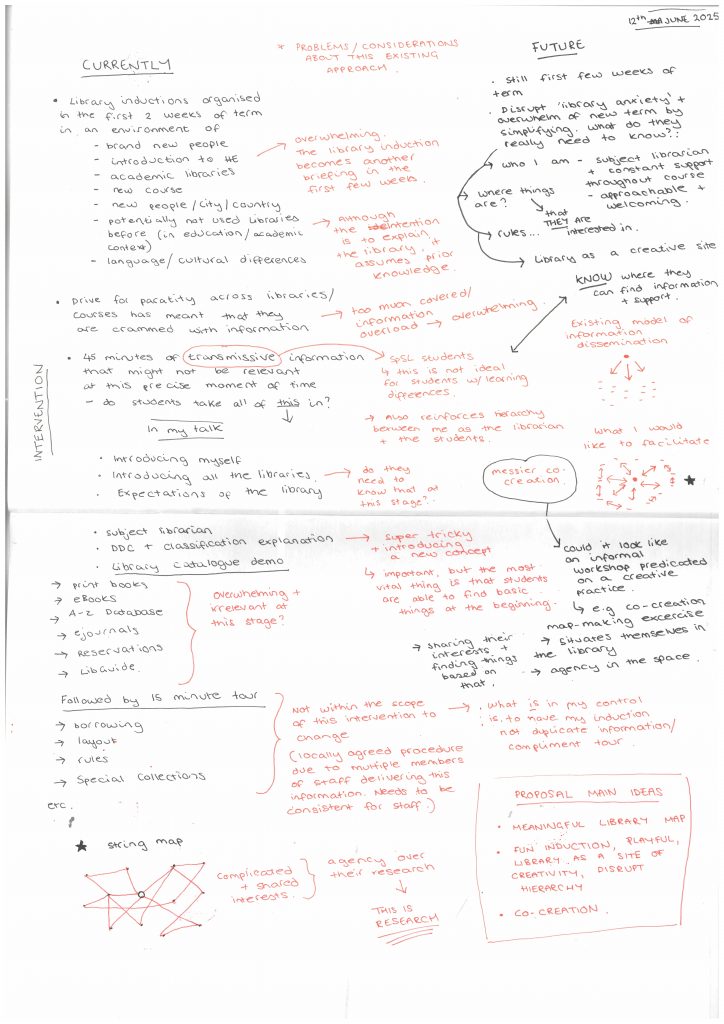 12th JUNE 2025
CURRENTLY
* PROBLEMS / CONSIDERATIONS
ABOUT THIS EXISTING
APPROACH.
FUTURE
• Library inductions organised
in the first 2 weeks of term
in an environment of
- brand new people
- introduction to HE
- academic libraries
- new course
- new people/city/country
- potentially not used libraries
before (in education/academic
context)
- language/cultural differences
→ overwhelming.
The library induction
becomes another
briefing in the
first few weeks.
→ Although
the intention
is to explain
the library, it
assumes prior
knowledge.
• Still first few weeks of
term
• Disrupt 'library anxiety' +
overwhelm of new term by
simplifying. what do they
really need to know?:
→ who I am - subject librarian
+ constant support
throughout course
- approachable +
welcoming.
→ where things
are?
↘ that
THEY ARE
interested in.
→ rules...
→ Library as a creative site
KNOW where they
can find information
+ support.
• Drive for paratity across libraries/
courses has meant that they
are crammed with information
→ too much covered/
information
overload → overwhelming.
INTERVENTION
• 45 minutes of transmissive information
that might not be relevant
at this precise moment of time
- do students take all of this in?
SPSL students
↳ this is not ideal
for students w/ learning
differences.
→ Also reinforces hierarchy
between me as the librarian
+ the students.
Existing model of
information
dissemination
what I would
like to facilitate
messier co-
creation.
★
In my talk
• Introducing myself
• Introducing all the libraries.
• Expectations of the library
→ do they
need to
know that at
this stage?
• subject librarian
• DDC + classification explanation
• Library catalogue demo
→ super tricky
+ introducing
a new concept
↳ important, but the most
vital thing is that students
are able to find basic
things at the beginning.
→ print books
→ eBooks
→ A-Z Database
→ ejournals
→ Reservations
→ LibGuide.
overwhelming +
irrelevant at
this stage?
could it look like
an informal
workshop predicated
on a creative
practice.
↳ e.g co-creation
map-making excercise
→ sharing their
interests +
finding things
based on
that.
→ situates themselves in
the library
→ agency in the space.
Followed by 15 minute tour
→ borrowing
→ layout
→ rules
→ Special Collections
etc.
Not within the scope
of this intervention to
change
(locally agreed procedure
due to multiple members
of staff delivering this
information. Needs to be
consistent for staff.)
→ what is in my control
is, to have my induction
not duplicate information/
compliment tour.
★ string map
complicated
+ shared
interests.
agency over
their research
THIS IS
RESEARCH
PROPOSAL MAIN IDEAS
• MEANINGFUL LIBRARY MAP
• FUN INDUCTION, PLAYFUL,
LIBRARY AS A SITE OF
CREATIVITY, DISRUPT
HIERARCHY
• CO-CREATION.